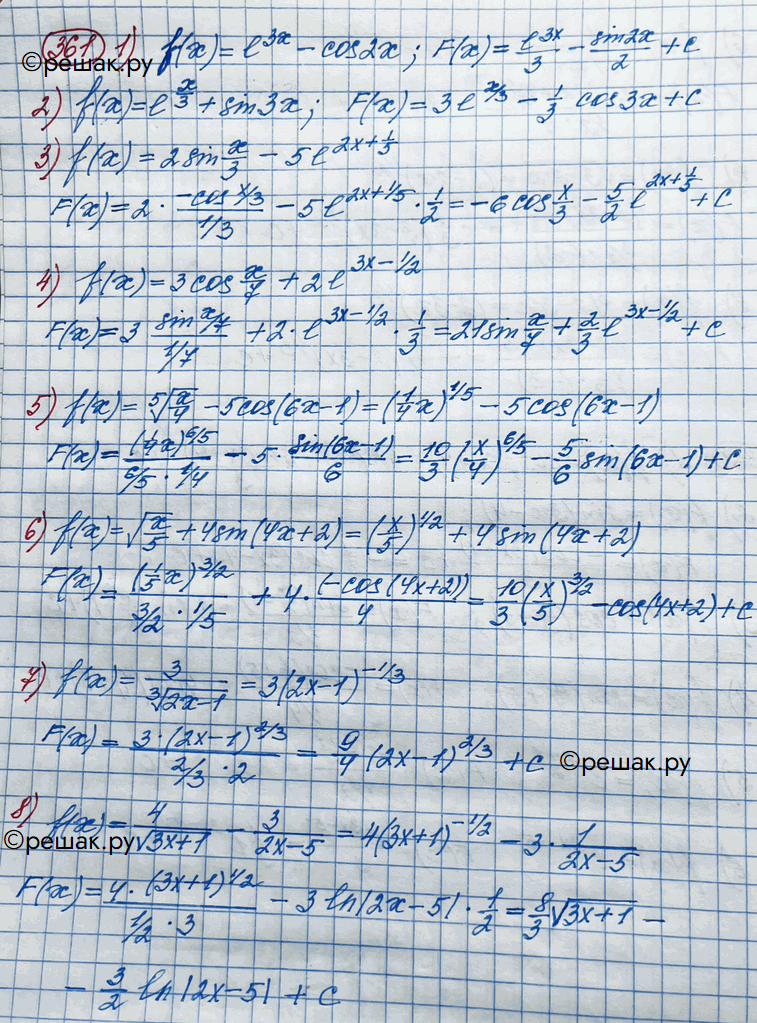 361 1) f(x) = e^{3x} - cos2x ; F(x) = \frac{e^{3x}}{3} - \frac{sin2x}{2} + c
©решак.ру
2) f(x) = e^{\frac{x}{3}} + sin3x ; F(x) = 3e^{x/3} - \frac{1}{3} cos3x + C
3) f(x) = 2sin\frac{x}{3} - 5e^{2x+\frac{1}{5}}
F(x) = 2 · \frac{-cos x/3}{1/3} - 5e^{2x+1/5} · \frac{1}{2} = -6cos\frac{x}{3} - \frac{5}{2}e^{2x+\frac{1}{5}} + C
4) f(x) = 3cos\frac{x}{7} + 2e^{3x-1/2}
F(x) = 3 \frac{sin x/7}{1/7} + 2 · e^{3x-1/2} · \frac{1}{3} = 21sin\frac{x}{7} + \frac{2}{3}e^{3x-1/2} + C
5) f(x) = \sqrt[5]{\frac{x}{4}} - 5cos(6x-1) = (\frac{1}{4}x)^{1/5} - 5cos(6x-1)
F(x) = \frac{(1/4x)^{6/5}}{6/5 · 1/4} - 5 · \frac{sin(6x-1)}{6} = \frac{10}{3}(\frac{x}{4})^{6/5} - \frac{5}{6}sin(6x-1) + C
6) f(x) = \sqrt{\frac{x}{5}} + 4sin(4x+2) = (\frac{x}{5})^{1/2} + 4sin(4x+2)
F(x) = \frac{(\frac{1}{5}x)^{3/2}}{3/2 · 1/5} + 4 · \frac{(-cos(4x+2))}{4} = \frac{10}{3}(\frac{x}{5})^{3/2} - cos(4x+2) + C
7) f(x) = \frac{3}{\sqrt[3]{2x-1}} = 3(2x-1)^{-1/3}
F(x) = \frac{3·(2x-1)^{2/3}}{2/3 · 2} = \frac{9}{4}(2x-1)^{2/3} + C ©решак.ру
8) f(x) = \frac{4}{\sqrt{3x+1}} - \frac{3}{2x-5} = 4(3x+1)^{-1/2} - 3 · \frac{1}{2x-5}
©решак.ру
F(x) = \frac{4·(3x+1)^{1/2}}{1/2 · 3} - 3 ln|2x-5| · \frac{1}{2} = \frac{8}{3}\sqrt{3x+1} -
- \frac{3}{2} ln|2x-5| + C